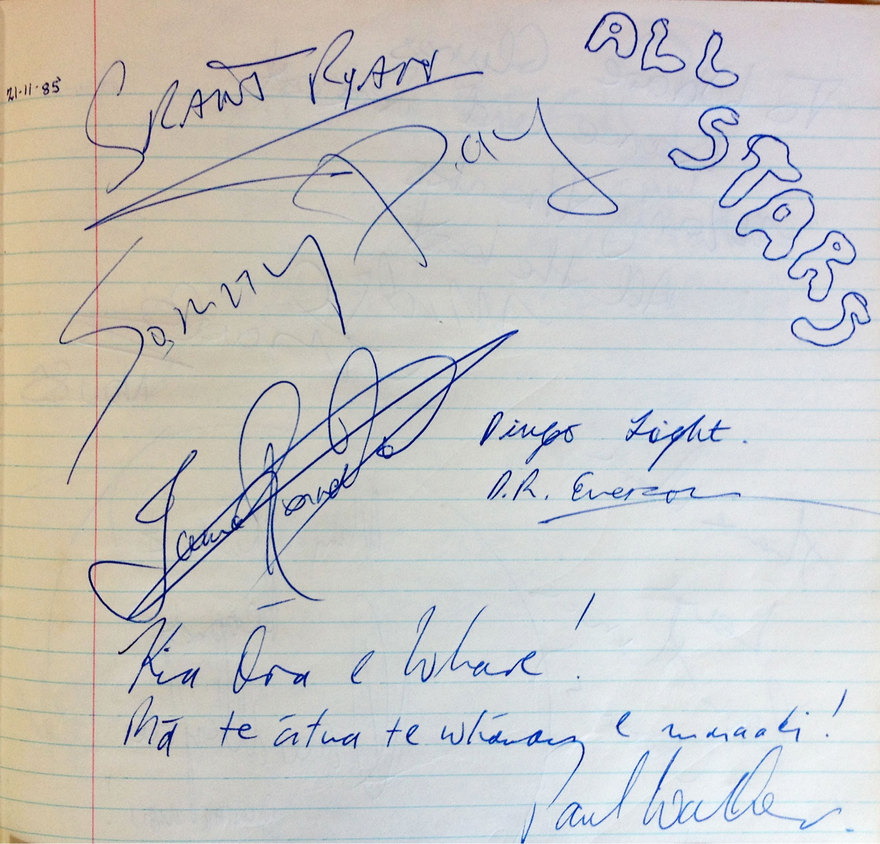 21-11-85
GRANT RYAN
ALL
STARS
Sonny Day
Dingo Light.
D.R. Everson
Kia Ōra e Whare!
Mā te ātua te whānau e manaaki!
Paul Walker